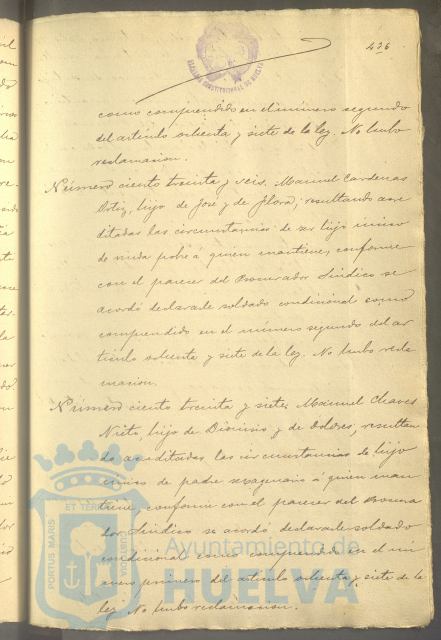 436
ALCALDIA CONSTITUCIONAL DE HUELVA
como comprendido en el número segundo
del artículo ochenta y siete de la ley. No hubo
reclamacion.
Número ciento treinta y seis. Manuel Cardenas
Ortiz, hijo de José y de Flora; resultando acre
ditadas las circunstancias de ser hijo único
de viuda pobre á quien mantiene, conforme
con el parecer del Procurador Síndico se
acordó declararle soldado condicional como
comprendido en el número segundo del ar
tículo ochenta y siete de la ley. No hubo recla
macion.
Número ciento treinta y siete. Manuel Chaves
Nieto, hijo de Dionisio y de Dolores; resultan
do acreditadas las circunstancias de hijo
único de padre sexagenario á quien man
tiene, conforme con el parecer del Procura
dor Síndico se acordó declararle soldado
condicional como comprendido en el nú
mero primero del artículo ochenta y siete de la
ley. No hubo reclamacion.
PORTUS MARIS ET TERRAE CUSTODIA
Ayuntamiento de
HUELVA